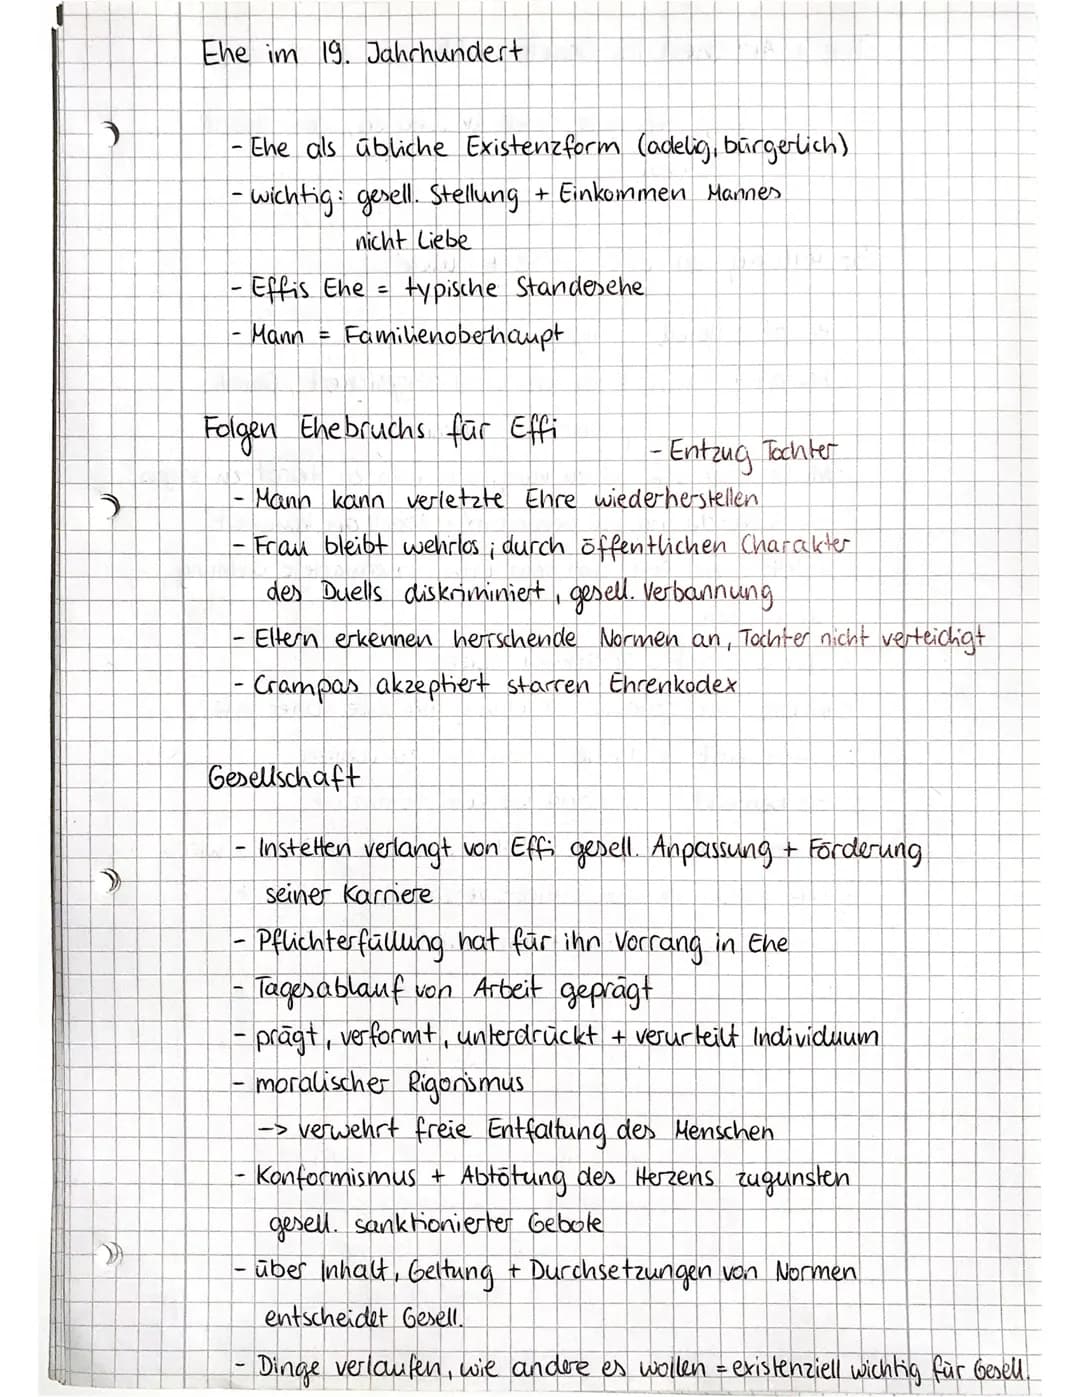 Ehe im 19. Jahrhundert
- Ehe als übliche Existenzform (adelig, bürgerlich)
- wichtig: gesell. Stellung + Einkommen Mannes
nicht Liebe
- Effis Ehe = typische Standesehe
- Mann = Familienoberhaupt
Folgen Ehebruchs für Effi
- Entzug Tochter
- Mann kann verletzte Ehre wiederherstellen
- Frau bleibt wehrlos ; durch öffentlichen Charakter
des Duells diskriminiert, gesell. Verbannung
- Eltern erkennen herrschende Normen an, Tochter nicht verteidigt
- Crampas akzeptiert starren Ehrenkodex
Gesellschaft
- Instetten verlangt von Effi gesell. Anpassung + Förderung
seiner Karriere
- Pflichterfüllung hat für ihn Vorrang in Ehe
- Tagesablauf von Arbeit geprägt
- prägt, verformt, unterdrückt + verurteilt Individuum
- moralischer Rigorismus
-> verwehrt freie Entfaltung des Menschen
- Konformismus + Abtötung des Herzens zugunsten
gesell. sanktionierter Gebote
- über Inhalt, Geltung + Durchsetzungen von Normen
entscheidet Gesell.
- Dinge verlaufen, wie andere es wollen = existenziell wichtig für Gesell.